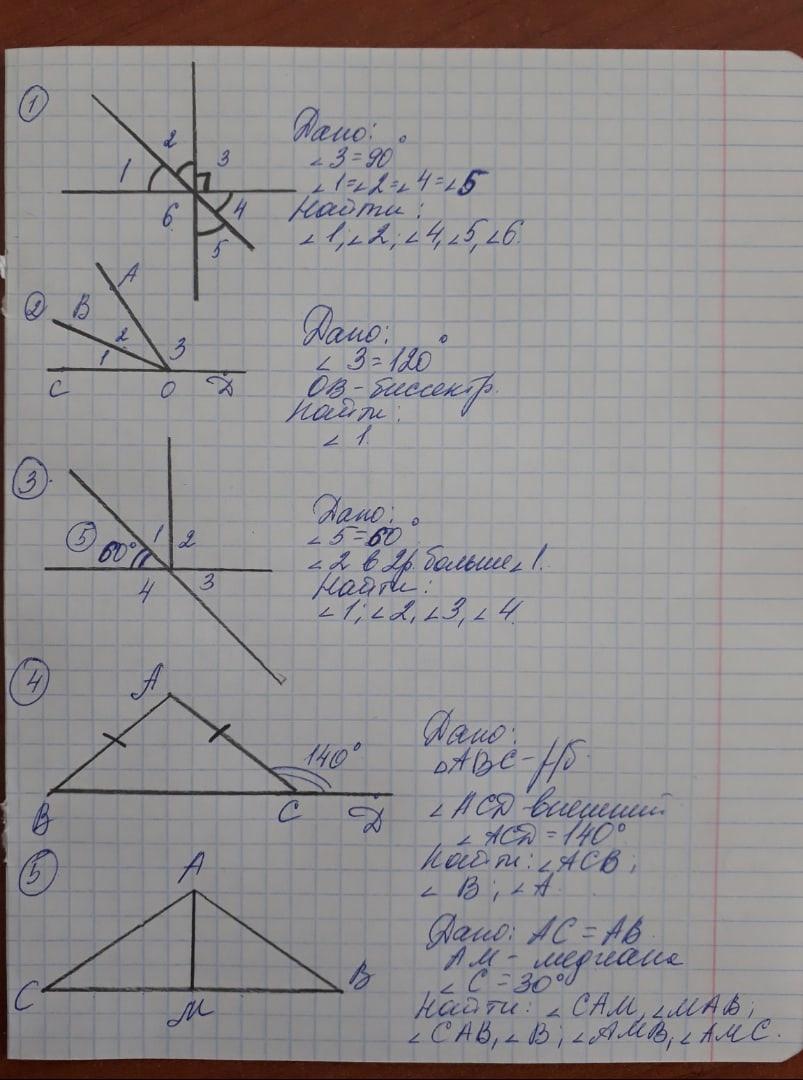 1
2
3
1
6
4
5
Дано:
∠3=90°
∠1=∠2=∠4=∠5
Найти:
∠1; ∠2; ∠4, ∠5, ∠6.
2
A
B
2
3
1
C
O
D
Дано:
∠3=120°
OB-биссектр.
Найти:
∠1.
3
5
60°
1
2
4
3
Дано:
∠5=60°
∠2 в 2р. больше ∠1.
Найти:
∠1; ∠2, ∠3, ∠4.
4
A
140°
B
C
D
Дано:
△ABC-р/б.
∠ACD-внешний
∠ACD=140°
Найти: ∠ACB;
∠B; ∠A.
5
A
C
B
M
Дано: AC=AB.
AM-медиана
∠C=30°
Найти: ∠CAM, ∠MAB;
∠CAB, ∠B; ∠AMB, ∠AMC.